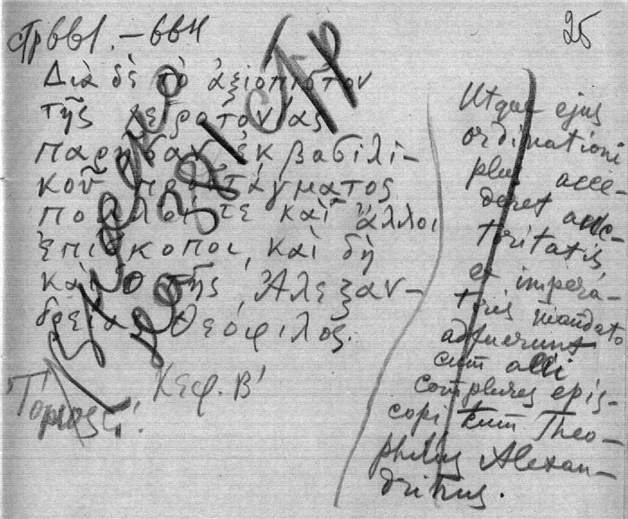 661.–664
25
Διὰ δὲ τὸ ἀξιόπιστον
τῆς χειροτονίας
παρῆσαν ἐκ βασιλι-
κοῦ προστάγματος
πολλοί τε καὶ ἄλλοι
ἐπίσκοποι, καὶ δὴ
καὶ ὁ τῆς Ἀλεξαν-
δρείας Θεόφιλος.
Κεφ. Β'
Utque ejus
ordinationi
plus acce-
deret auc-
toritatis,
ex impera-
toris mandato
adfuerunt
cum alii
complures epis-
copi tum Theo-
philus Alexan-
drinus.